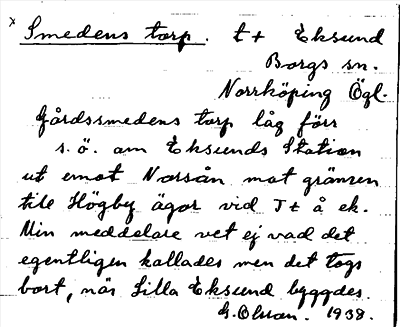 x Smedens torp. t + Eksund
Borgs sn.
Norrköping Ögl.
Gårdssmedens torp låg förr
s.ö. om Eksunds Station
ut emot Norsån mot gränsen
till Högby ägor vid J t å ek.
Min meddelare vet ej vad det
egentligen kallades men det togs
bort, när Lilla Eksund byggdes.
G. Olsson. 1938.